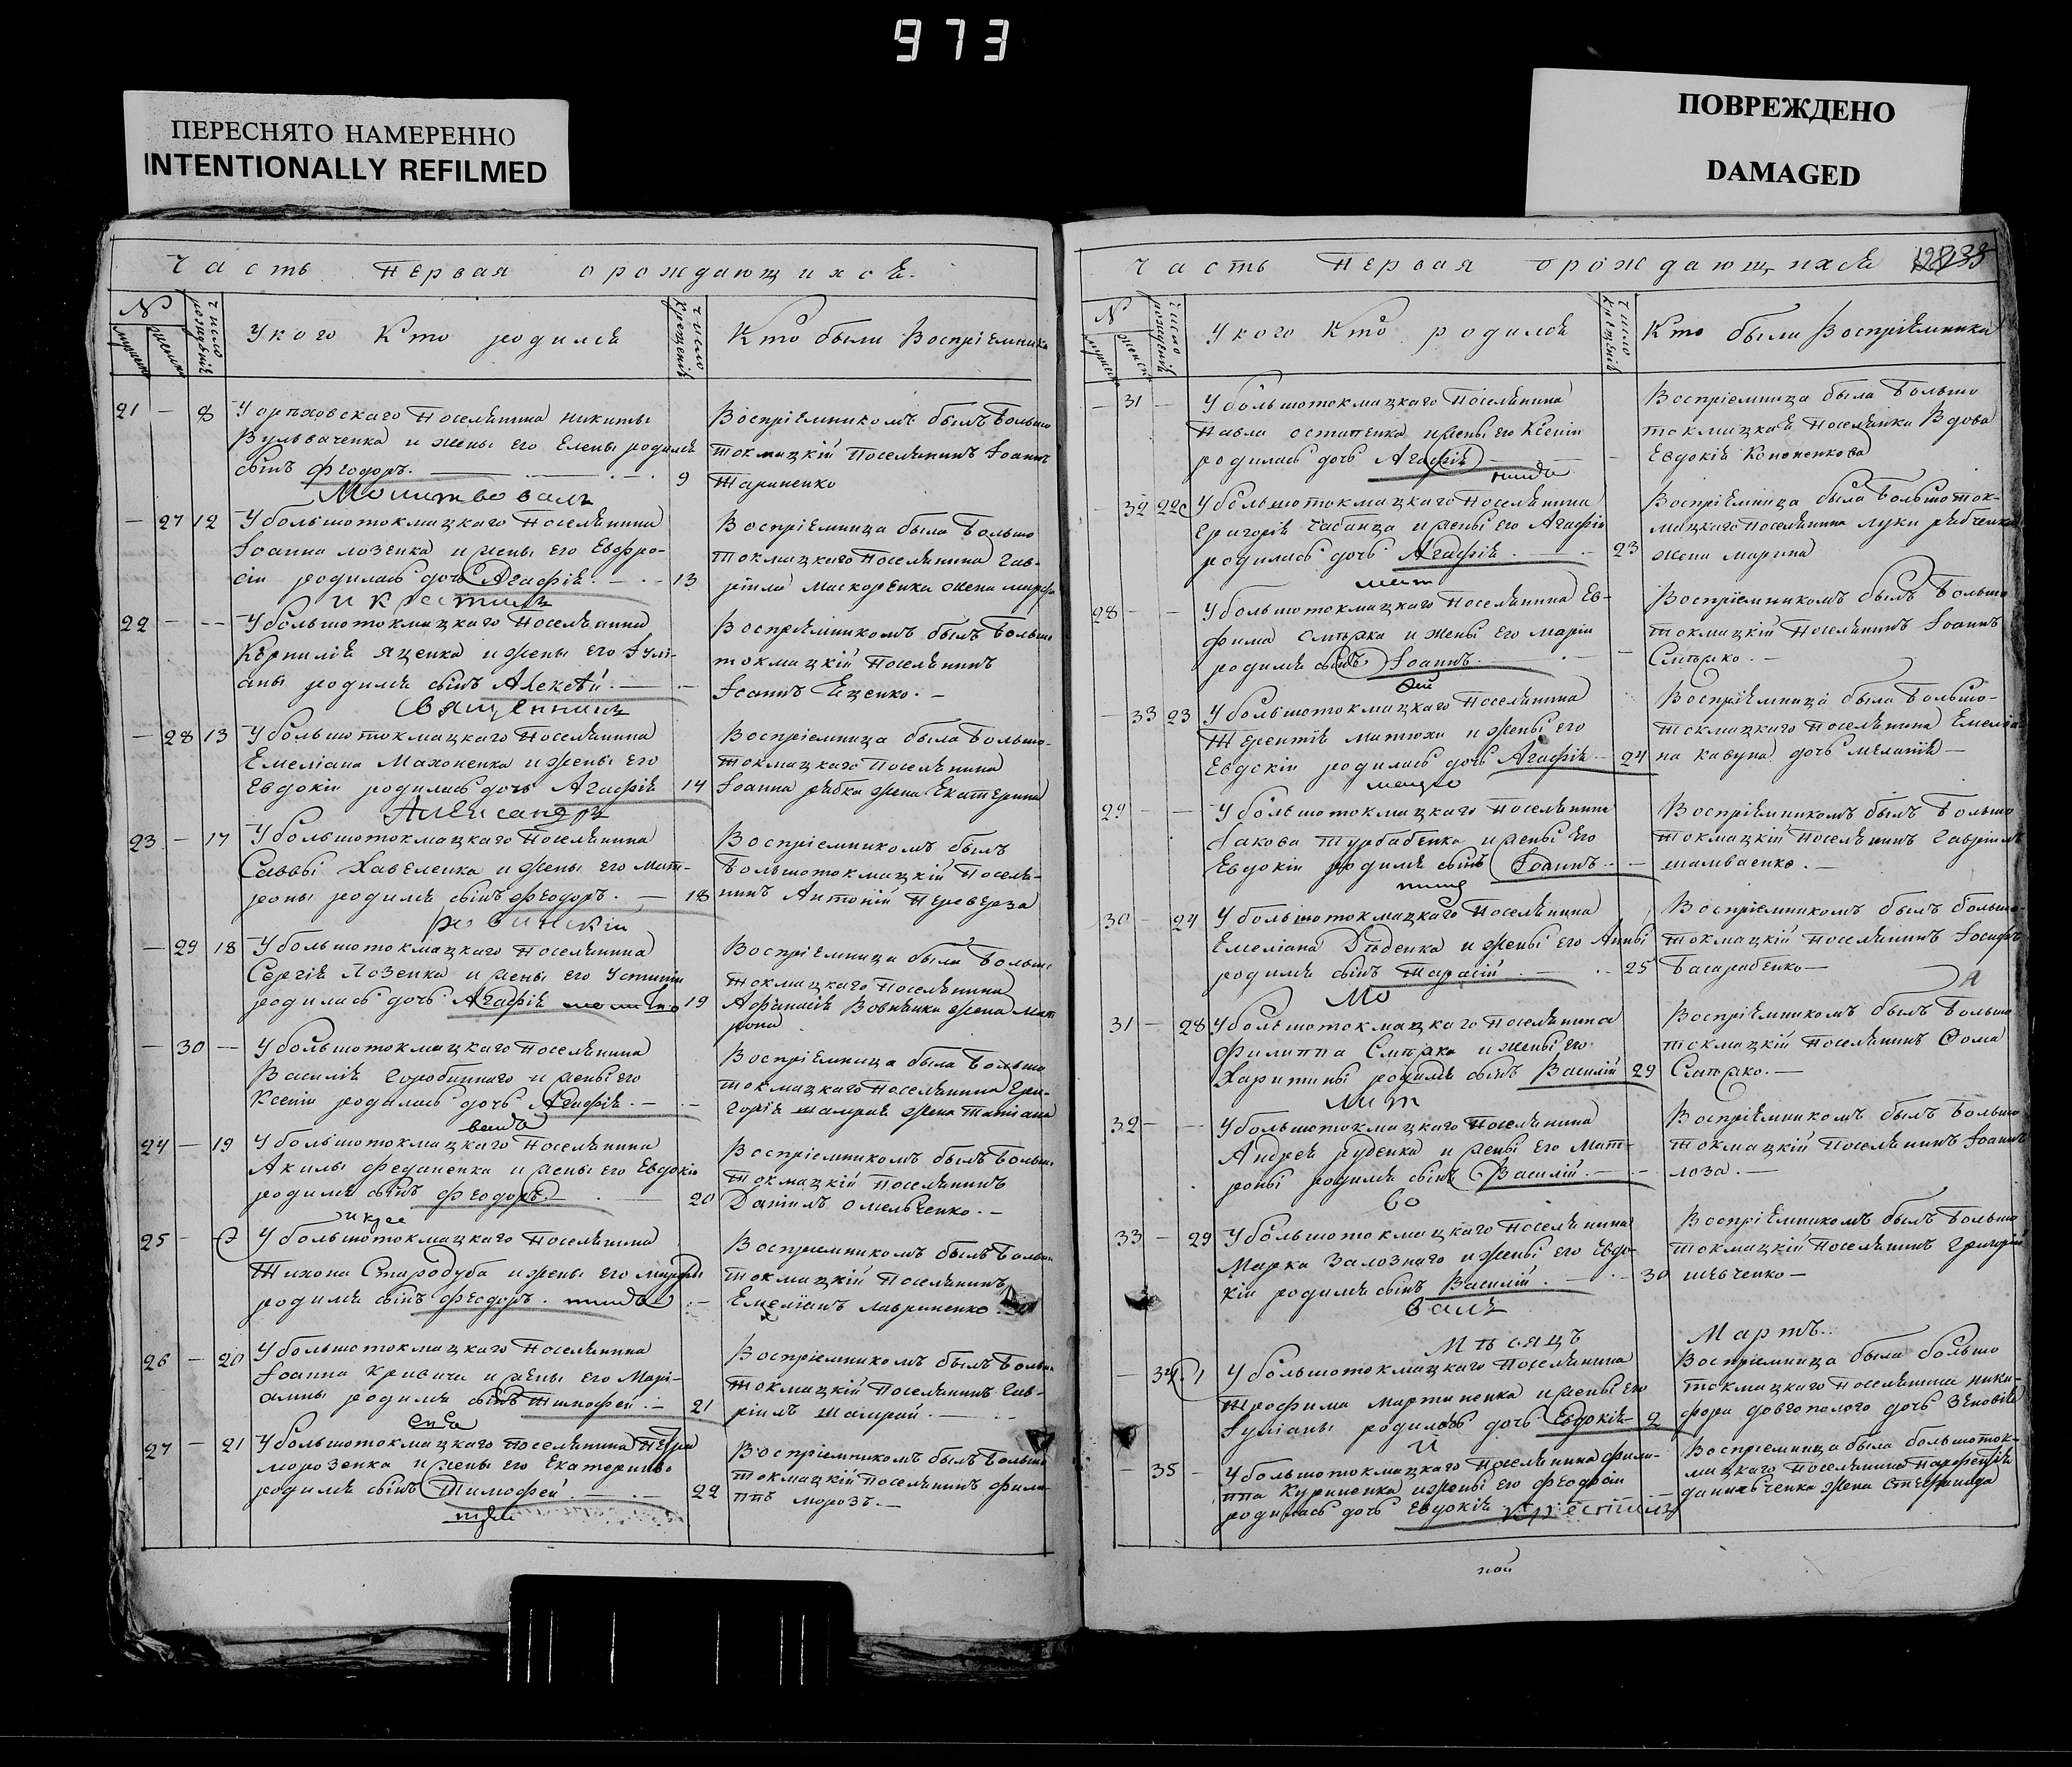 973
ПЕРЕСНЯТО НАМЕРЕННО
INTENTIONALLY REFILMED
ПОВРЕЖДЕНО
DAMAGED
Часть Первая ораждающихся.
№ Число рожденія У кого Кто родился Число крещенія Кто были Воспріемники
21 — 8 У Орѣховскаго Поселянина Никиты
и жены его Елены родился
сынъ Феодоръ. 9
Воспріемникомъ былъ Больше
токмацкій Поселянинъ Іоаннъ
Тариненко
Молитвовалъ
— 27 12 У большотокмацкаго Поселянина
Іоанна Лозенка и жены его Евфро-
сіи родилась дочь Агафія. 13
Воспріемница была Больше
токмацкаго Поселянина Гав-
ріила жена Марфа
и крестилъ
22 — — У большотокмацкаго Поселянина
Корнилія Яценка и жены его Іулі-
аны родился сынъ Алексѣй. —
Воспріемникомъ былъ Больше
токмацкій Поселянинъ
Іоаннъ Яценко. —
Священникъ
— 28 13 У большотокмацкаго Поселянина
Емеліана Махоненка и жены его
Евдокіи родилась дочь Агафія 14
Воспріемница была Больше-
токмацкаго Поселянина
Іоанна Рябка жена Екатерина
Александръ
23 — 17 У большотокмацкаго Поселянина
Саввы Хавеленка и жены его Мат-
роны родился сынъ Феодоръ. — 18
Воспріемникомъ былъ
Большотокмацкій Поселя-
нинъ Антоній Переверза
— 29 18 У большотокмацкаго Поселянина
Сергія Лозенка и жены его Устиніи
родилась дочь Агафія 19
Воспріемница была Больше
токмацкаго Поселянина
Афанасія жена Мат
рона
— 30 — У большотокмацкаго Поселянина
Василія Горобиннаго и жены его
Ксеніи родилась дочь Агафія. —
Воспріемница была Больше
токмацкаго Поселянина Гри-
горія Шамрая жена Татіана
24 — 19 У большотокмацкаго Поселянина
Акилы Феданенка и жены его Евдокіи
родился сынъ Феодоръ. 20
Воспріемникомъ былъ Больше
токмацкій Поселянинъ
Даніилъ Омельченко. —
и кре
25 — У большотокмацкаго Поселянина
Тихона Стародуба и жены его Марфы
родился сынъ Феодоръ. —
Воспріемникомъ былъ Больше
токмацкій Поселянинъ
Емеліанъ Лавриненко
26 — 20 У большотокмацкаго Поселянина
Іоанна Кривича и жены его Марі-
анны родился сынъ Тимофей. — 21
Воспріемникомъ былъ Больше
токмацкій Поселянинъ Гав-
ріилъ Шамрай. —
27 — 21 У большотокмацкаго Поселянина Петра
Морозенка и жены его Екатерины
родился сынъ Тимофей. 22
Воспріемникомъ былъ Больше
токмацкій Поселянинъ Фили-
ппъ Морозъ. —
Часть Первая орождающихся
№ Число рожденія У кого Кто родился Число крещенія Кто были Воспріемники
— 31 — У большотокмацкаго Поселянина
Павла Остапенка и жены его Ксеніи
родилась дочь Агафія —
Воспріемница была Больше
токмацкая Поселянка Вдова
Евдокія Кононенкова
— 32 22 У большотокмацкаго Поселянина
Григорія Чабанца и жены его Агафіи
родилась дочь Агафія. 23
Воспріемница была Большоток-
мацкаго Поселянина Луки Рябченка
жена Марина
28 — — У большотокмацкаго Поселянина Ев-
фима Смѣрка и жены его Маріи
родился сынъ Іоаннъ. —
Воспріемникомъ былъ Больше
токмацкій Поселянинъ Іоаннъ
— 33 23 У большотокмацкаго Поселянина
Терентія Матюхи и жены его
Евдокіи родилась дочь Агафія 24
Воспріемница была Больше-
токмацкаго Поселянина Емелья
на Кавуна дочь Меланія —
29 — — У большотокмацкаго Поселянина
Іакова Турбабенка и жены его
Евдокіи родился сынъ Іоаннъ. —
Воспріемникомъ былъ Больше
токмацкій Поселянинъ Гавріилъ
30 — 24 У большотокмацкаго Поселянина
Емеліана Дѣденка и жены его Анны
родился сынъ Тарасій 25
Воспріемникомъ былъ Больше-
токмацкій Поселянинъ Іосифъ
Басарабенко —
Мо
31 — 28 У большотокмацкаго Поселянина
Филиппа Смѣрка и жены его
Харитины родился сынъ Василій 29
Воспріемникомъ былъ Больше
токмацкій Поселянинъ Фома
лит
32 — — У большотокмацкаго Поселянина
Андрея Руденка и жены его Мат-
роны родился сынъ Василій. —
Воспріемникомъ былъ Больше
токмацкій Поселянинъ Іоаннъ
Лоза. —
во
33 — 29 У большотокмацкаго Поселянина
Марка Залознаго и жены его Евдо-
кіи родился сынъ Василій. 30
Воспріемникомъ былъ Больше
токмацкій Поселянинъ Григорій
Шевченко —
валъ
Мѣсяцъ Мартъ.
— 34 1 У большотокмацкаго Поселянина
Трофима Мартиненка и жены его
Іуліаны родилась дочь Евдокія 2
Воспріемница была Больше
токмацкаго Поселянина Ники-
фора Довгополого дочь Зеновія
и
35 — У большотокмацкаго Поселянина Фили-
ппа Куриненка и жены его Феодосіи
родилась дочь Евдокія крестилъ
Воспріемница была Большоток-
мацкаго Поселянина Парфентія
Данильченка жена Стефанида